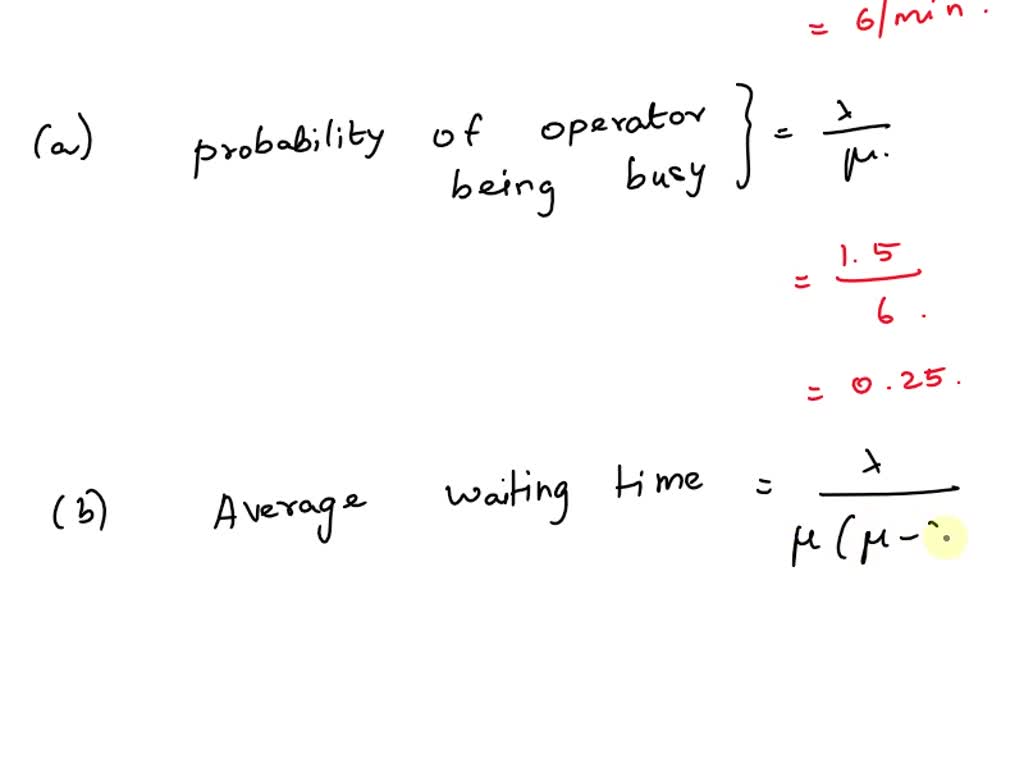 = 6/min.
(a) probability of operator being busy } = λ/μ.
= 1.5/6.
= 0.25.
(b) Average waiting time = λ/μ(μ-